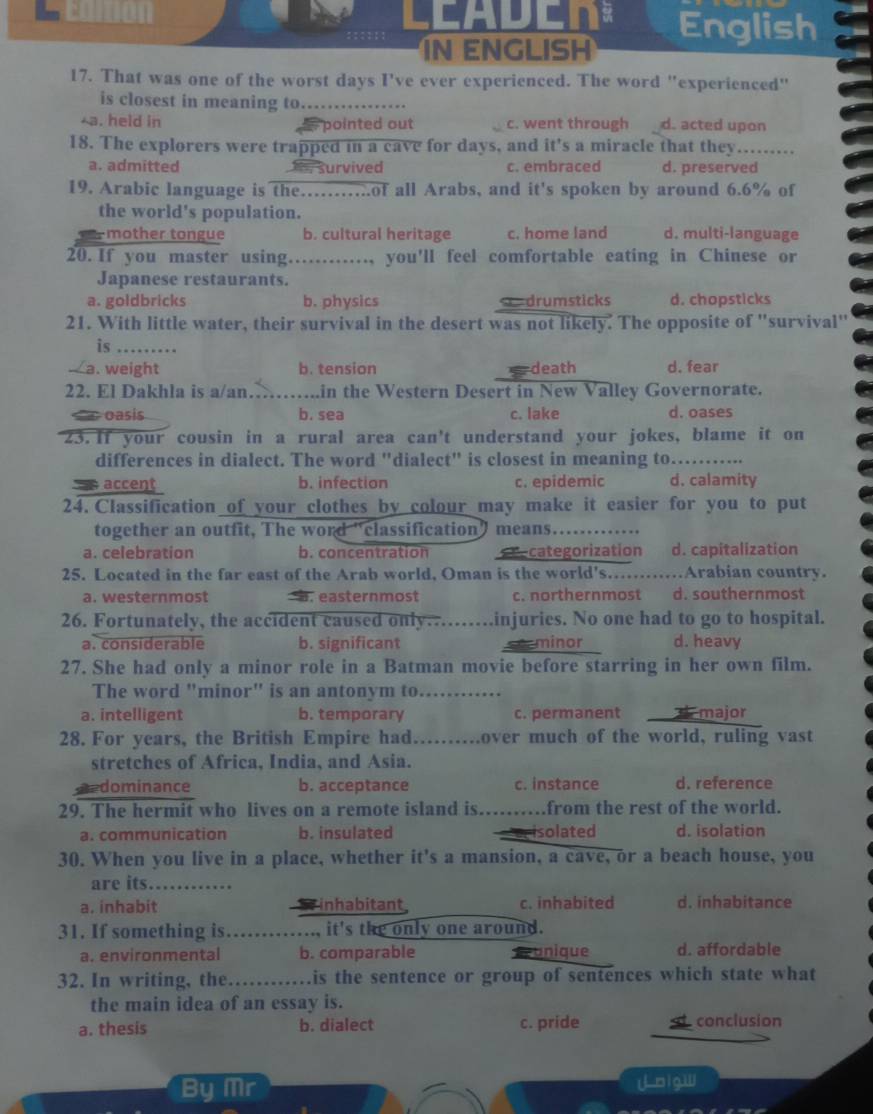 Edition
LEADER
IN ENGLISH
Hello
English
17. That was one of the worst days I've ever experienced. The word "experienced"
is closest in meaning to................
a. held in pointed out c. went through d. acted upon
18. The explorers were trapped in a cave for days, and it's a miracle that they.........
a. admitted survived c. embraced d. preserved
19. Arabic language is the...........of all Arabs, and it's spoken by around 6.6% of
the world's population.
mother tongue b. cultural heritage c. home land d. multi-language
20. If you master using............, you'll feel comfortable eating in Chinese or
Japanese restaurants.
a. goldbricks b. physics drumsticks d. chopsticks
21. With little water, their survival in the desert was not likely. The opposite of "survival"
is .........
a. weight b. tension death d. fear
22. El Dakhla is a/an...........in the Western Desert in New Valley Governorate.
oasis b. sea c. lake d. oases
23. If your cousin in a rural area can't understand your jokes, blame it on
differences in dialect. The word "dialect" is closest in meaning to...........
accent b. infection c. epidemic d. calamity
24. Classification of your clothes by colour may make it easier for you to put
together an outfit, The word "classification" means.............
a. celebration b. concentration categorization d. capitalization
25. Located in the far east of the Arab world, Oman is the world's............Arabian country.
a. westernmost easternmost c. northernmost d. southernmost
26. Fortunately, the accident caused only..........injuries. No one had to go to hospital.
a. considerable b. significant minor d. heavy
27. She had only a minor role in a Batman movie before starring in her own film.
The word "minor" is an antonym to............
a. intelligent b. temporary c. permanent major
28. For years, the British Empire had..........over much of the world, ruling vast
stretches of Africa, India, and Asia.
dominance b. acceptance c. instance d. reference
29. The hermit who lives on a remote island is..........from the rest of the world.
a. communication b. insulated isolated d. isolation
30. When you live in a place, whether it's a mansion, a cave, or a beach house, you
are its............
a. inhabit inhabitant c. inhabited d. inhabitance
31. If something is............., it's the only one around.
a. environmental b. comparable unique d. affordable
32. In writing, the............is the sentence or group of sentences which state what
the main idea of an essay is.
a. thesis b. dialect c. pride conclusion
By Mr
للتواصل